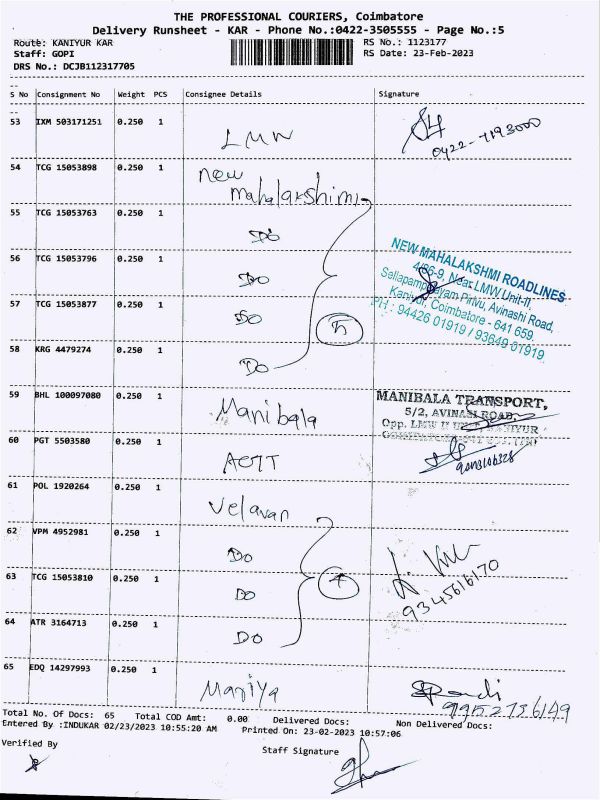 THE PROFESSIONAL COURIERS, Coimbatore
Delivery Runsheet - KAR - Phone No.:0422-3505555 - Page No.:5
Route: KANIYUR KAR
RS No.: 1123177
Staff: GOPI
RS Date: 23-Feb-2023
DRS No.: DCJB112317705
S No Consignment No Weight PCS Consignee Details Signature
53 IXM 503171251 0.250 1 LMW 0422-7193000
54 TCG 15053898 0.250 1 New
mahalakshimi
55 TCG 15053763 0.250 1 Do
56 TCG 15053796 0.250 1 Do
57 TCG 15053877 0.250 1 Do
58 KRG 4479274 0.250 1 Do
5
NEW MAHALAKSHMI ROADLINES
4/86-9, Near LMW Unit-II,
Pirivu, Avinashi Road,
Kaniyur, Coimbatore - 641 659.
PH : 94426 01919 / 93649 01919
59 BHL 100097080 0.250 1 Manibala
MANIBALA TRANSPORT,
5/2, AVINASI ROAD,
Opp. LMW II UNIT, KANIYUR
60 PGT 5503580 0.250 1
61 POL 1920264 0.250 1 Velavan
62 VPM 4952981 0.250 1 Do
63 TCG 15053810 0.250 1 Do
9345616170
64 ATR 3164713 0.250 1 Do
65 EDQ 14297993 0.250 1 Maniya
9952736149
Total No. Of Docs: 65 Total COD Amt: 0.00 Delivered Docs: Non Delivered Docs:
Entered By :INDUKAR 02/23/2023 10:55:20 AM Printed On: 23-02-2023 10:57:06
Verified By
Staff Signature